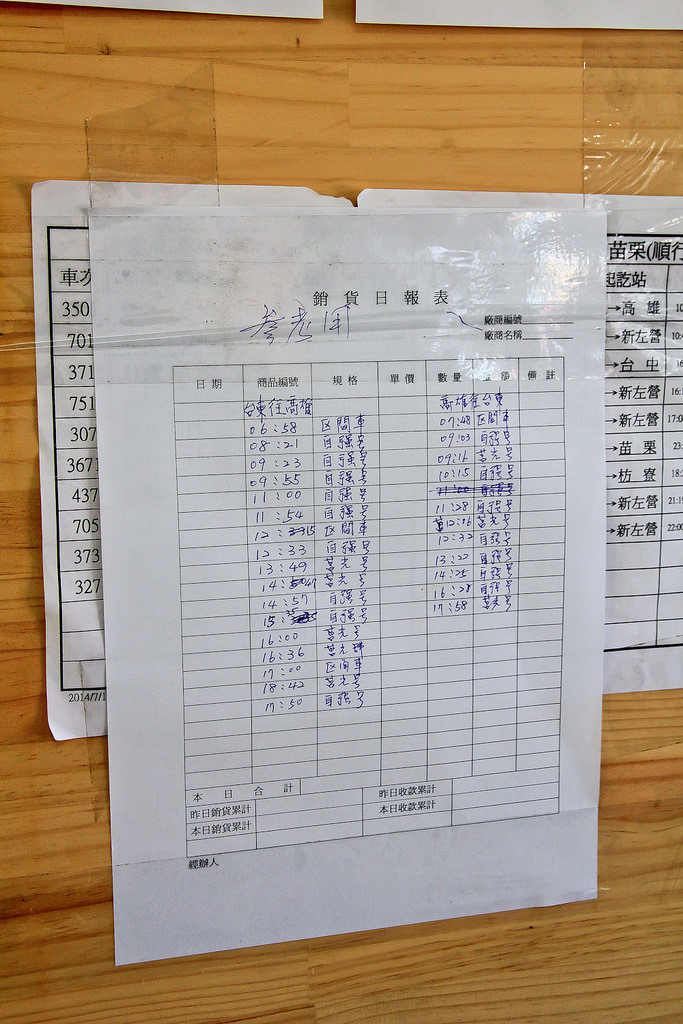 銷貨日報表
參考用
廠商編號
廠商名稱
日期 商品編號 規格 單價 數量 金額 備註
台東往高雄 高雄往台東
06:58 区間車 07:48 区間車
08:21 自強号 09:03 自強号
09:23 自強号 09:16 莒光号
09:55 自強号 10:15 自強号
11:00 自強号 11:00 自強号
11:54 自強号 11:28 自強号
12:15 区間車 12:06 莒光号
12:33 自強号 12:32 自強号
13:49 莒光号 13:22 自強号
14:47 莒光号 14:25 自強号
14:57 自強号 16:28 自強号
15:35 自強号 17:58 莒光号
16:00 莒光号
16:36 莒光号
17:00 区間車
18:42 莒光号
17:50 自強号
本日合計
昨日銷貨累計 昨日收款累計
本日銷貨累計 本日收款累計
經辦人
車次
350
701
371
751
307
3671
437
705
373
327
2014/7/1
苗栗(順行
起訖站
→高雄 10
→新左營 10:4
→台中 16
→新左營 16:1
→新左營 17:0
→苗栗 23:
→枋寮 18:
→新左營 21:1
→新左營 22:00